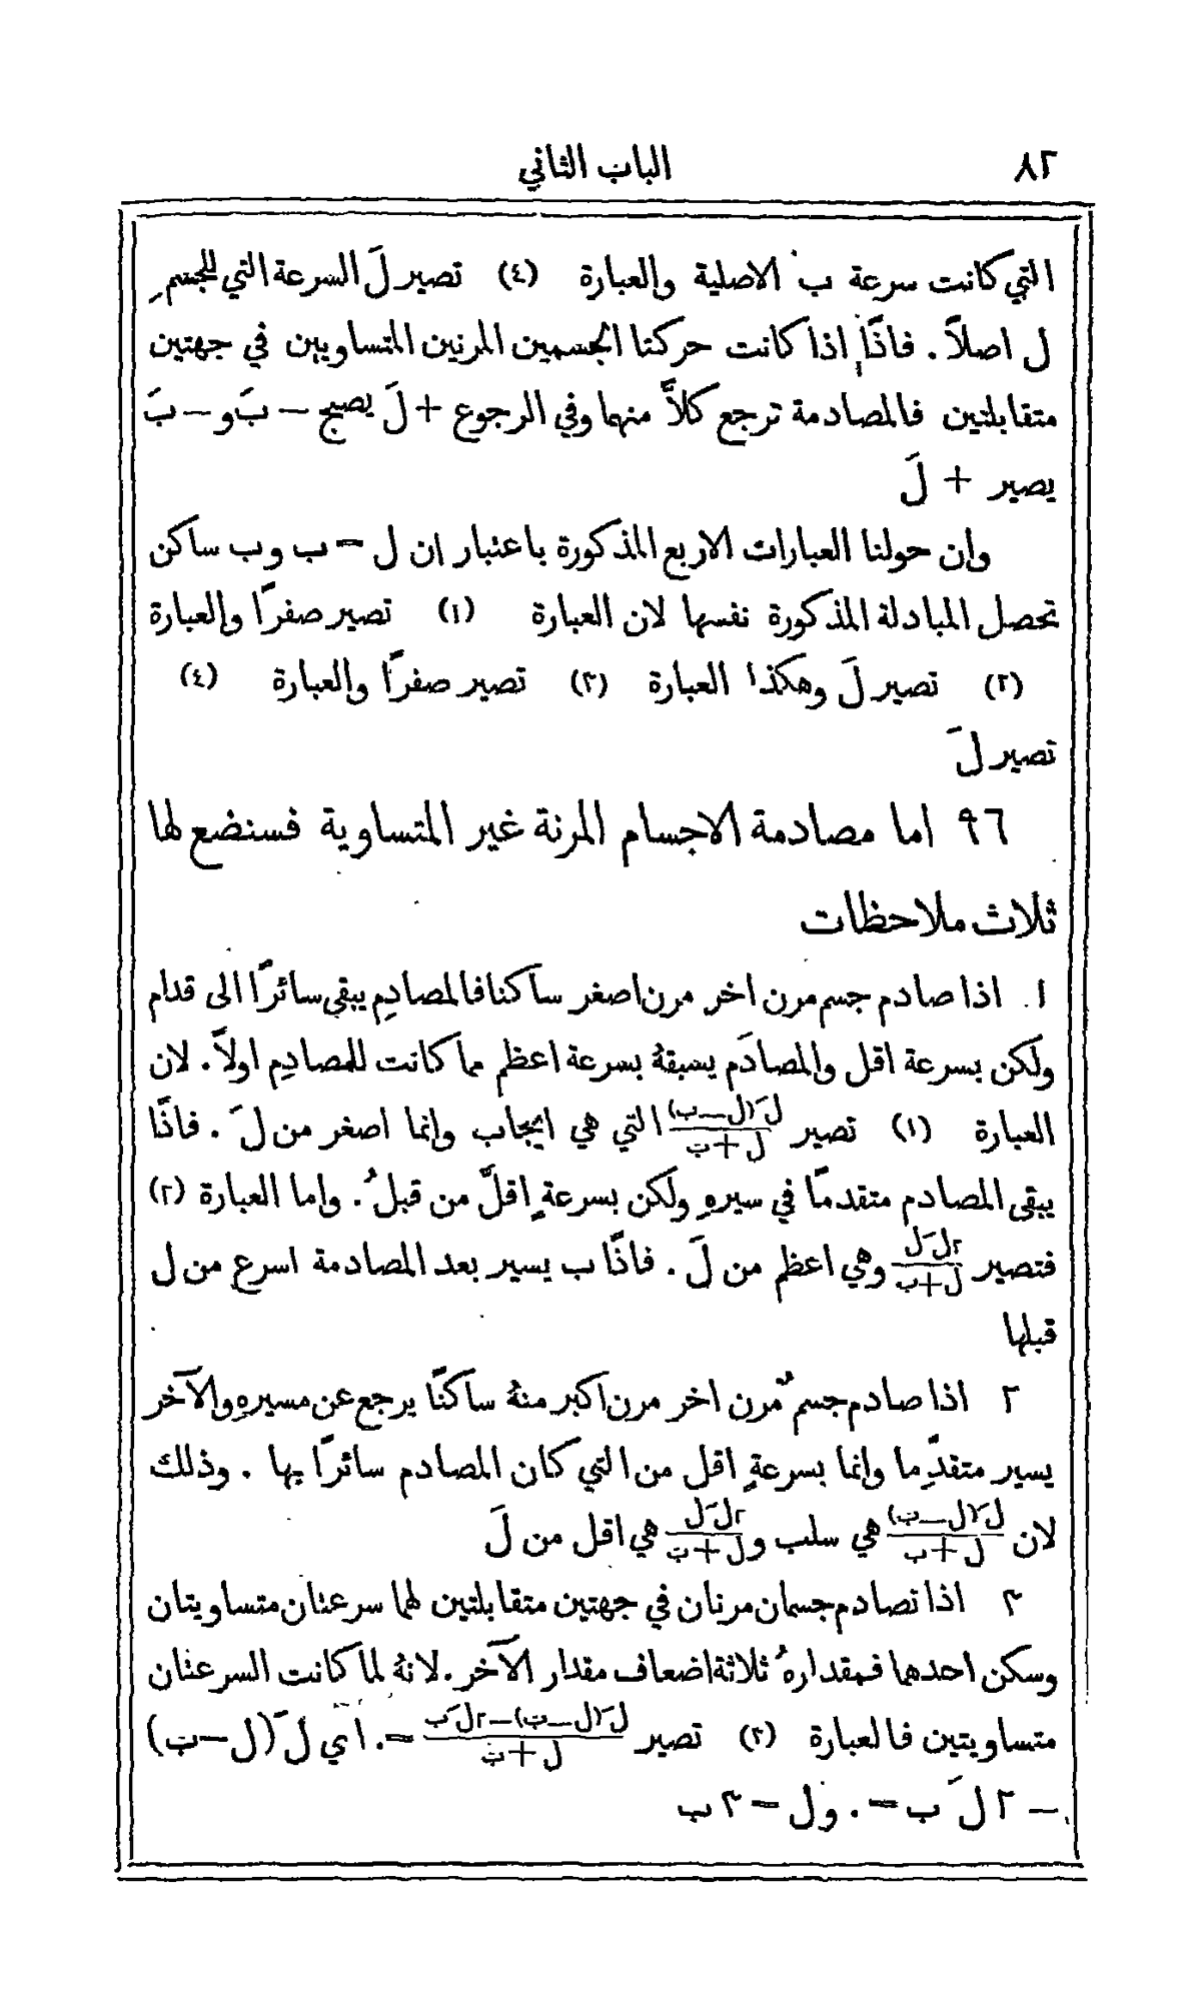 ٨٢ الباب الثاني
التي كانت سرعة ب الاصلية والعبارة (٤) تصير لَ السرعة التي للجسم
ل اصلاً . فاذًا اذا كانت حركتا الجسمين المرنين المتساويين في جهتين
متقابلتين فالمصادمة ترجع كلاًّ منهما وفي الرجوع + لَ يصبح − بَ و − بَ
يصير + لَ
وان حولنا العبارات الاربع المذكورة باعتبار ان ل = ب وب ساكن
تحصل المبادلة المذكورة نفسها لان العبارة (١) تصير صفرًا والعبارة
(٢) تصير لَ وهكذا العبارة (٣) تصير صفرًا والعبارة (٤)
تصير لَ
٩٦ اما مصادمة الاجسام المرنة غير المتساوية فسنضع لها
ثلاث ملاحظات
١. اذا صادم جسم مرن اخر مرن اصغر ساكنا فالمصادِم يبقى سائرًا الى قدام
ولكن بسرعة اقل والمصادَم يسبقهُ بسرعة اعظم مما كانت للمصادِم اولاً . لان
العبارة (١) تصير لَ(ل−ب)/ل+ب التي هي ايجاب وانما اصغر من لَ . فاذًا
يبقى المصادم متقدمًا في سيرهِ ولكن بسرعةٍ اقلَّ من قبلُ . واما العبارة (٢)
فتصير ٢لَ ل/ل+ب وهي اعظم من لَ . فاذًا ب يسير بعد المصادمة اسرع من ل
قبلها
٢ اذا صادم جسمٌ مرن اخر مرن اكبر منهُ ساكنًا يرجع عن مسيرهِ والآخر
يسير متقدِّما وانما بسرعةٍ اقل من التي كان المصادم سائرًا بها . وذلك
لان لَ(ل−ب)/ل+ب هي سلب و٢لَ ل/ل+ب هي اقل من لَ
٣ اذا تصادم جسمان مرنان في جهتين متقابلتين لهما سرعتان متساويتان
وسكن احدهما فمقدارهُ ثلاثة اضعاف مقدار الآخر . لانهُ لما كانت السرعتان
متساويتين فالعبارة (٣) تصير لَ(ل−ب)−٢لَ ب/ل+ب =٠ اي لَ (ل−ب)
− ٢ لَ ب =٠ ول = ٣ ب